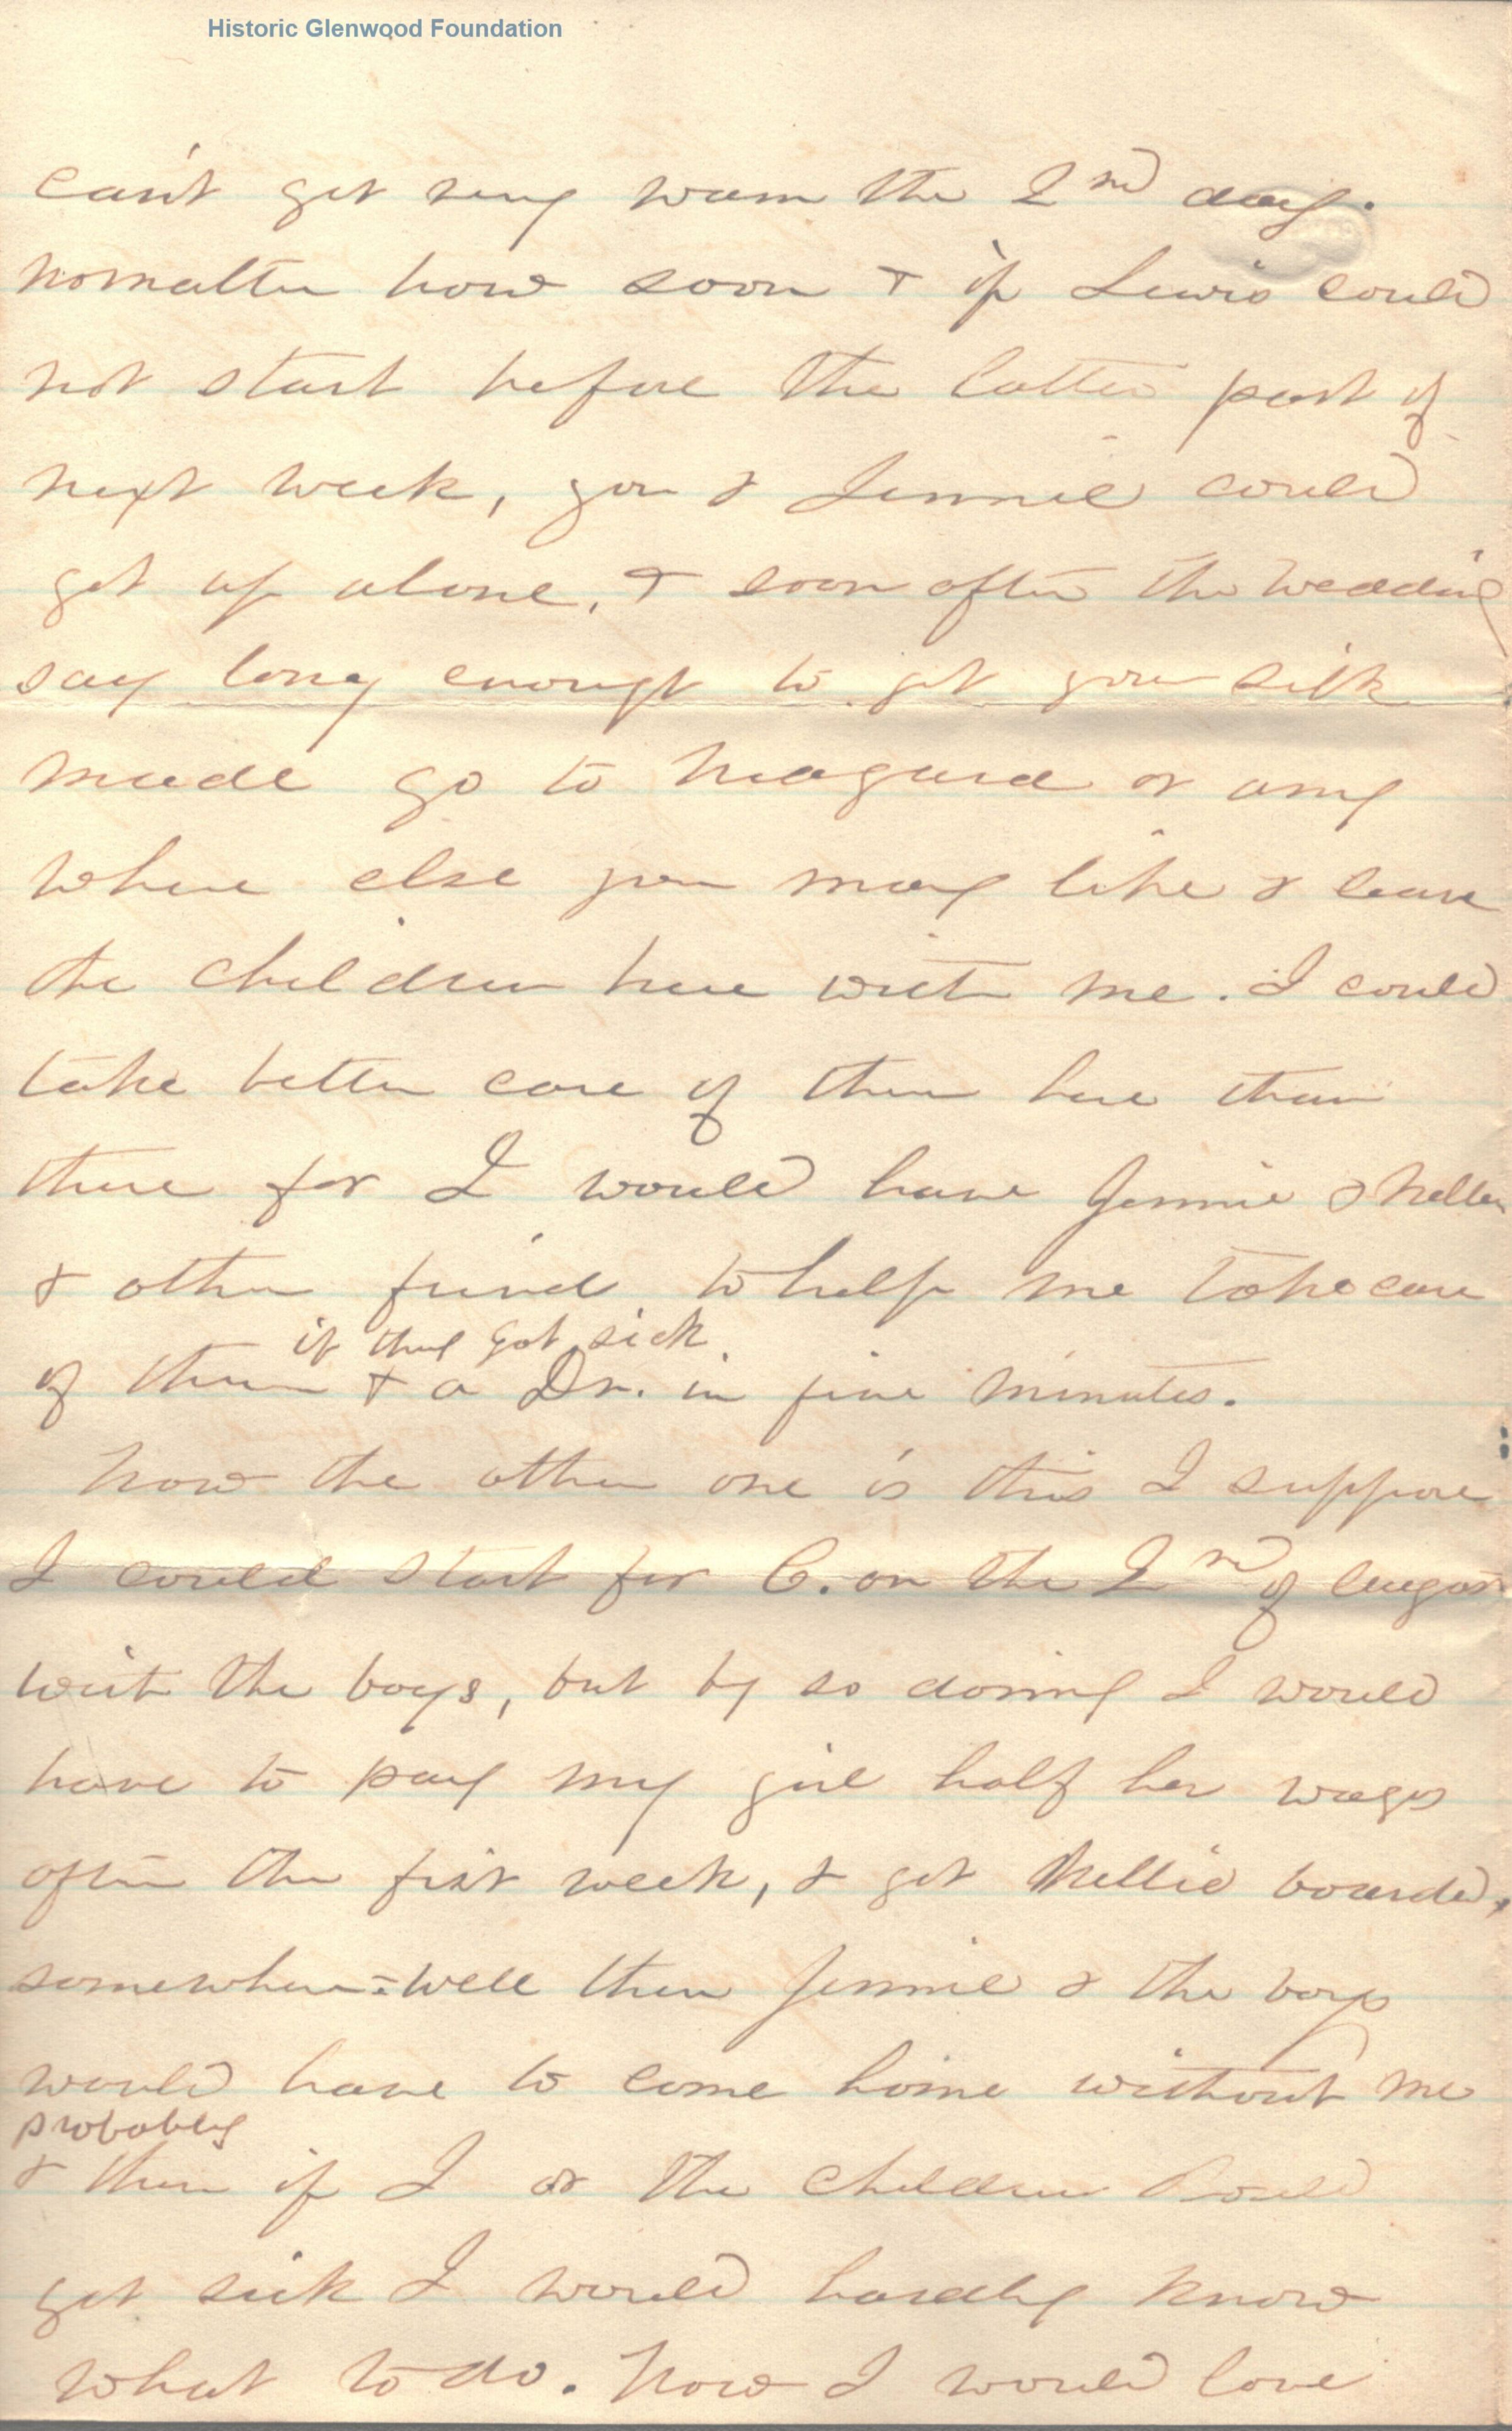 Historic Glenwood Foundation
can't get very warm the 2nd day.
nomatter how soon & if Lewis could
not start before the latter part of
next week, you & Jennie could
get up alone, & soon after the wedding
say long enough to get your silk
made go to Niagara or any
where else you may like & leave
the children here with me. I could
take better care of them here than
there for I would have Jennie & Nellie
& other friend to help me take care
if they got sick.
of them & a Dr. in five minutes.
Now the other one is this I suppose
I could start for C. on the 2nd of August
with the boys, but by so doing I would
have to pay my girl half her wages
after the first week, & get Nellie boarded,
somewhere. Well then Jennie & the boys
would have to come home without me
probably
& then if I or the children could
get sick I would hardly know
what to do. Now I would love